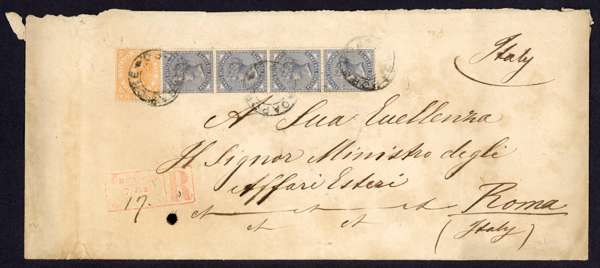 Italy
A Sua Eccellenza
Il Signor Ministro degli
Affari Esteri
Roma
(Italy)
17.